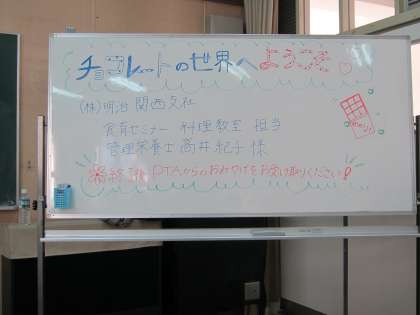 チョコレートの世界へようこそ♡
(株)明治 関西支社
食育セミナー 料理教室 担当
管理栄養士 高井 紀子 様
※終了後、PTAからのおみやげをお受け取りください!